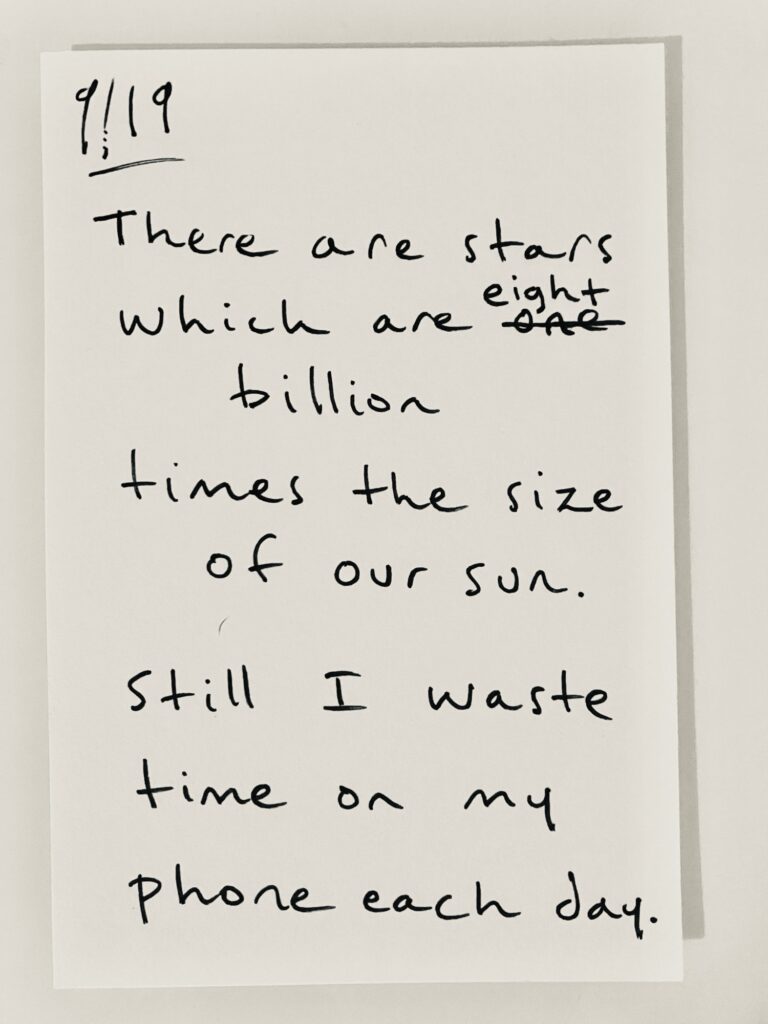 9/19
There are stars
which are eight
billion
times the size
of our sun.
Still I waste
time on my
phone each day.